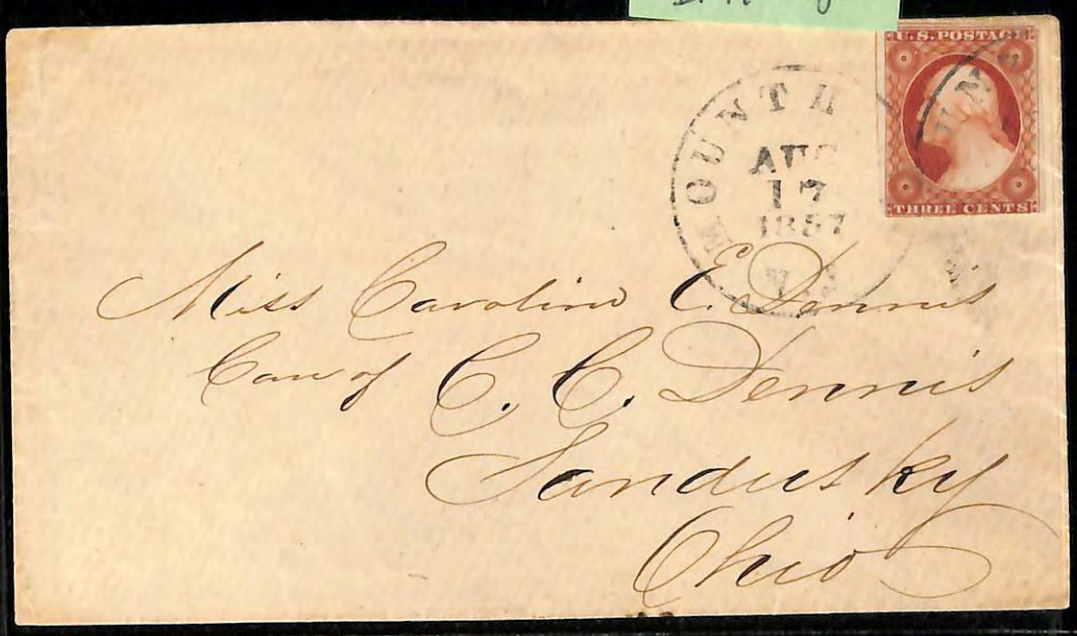 U.S. POSTAGE
THREE CENTS
AUG
17
1857
Miss Caroline E. Dennis
Care of C. C. Dennis
Sandusky
Ohio